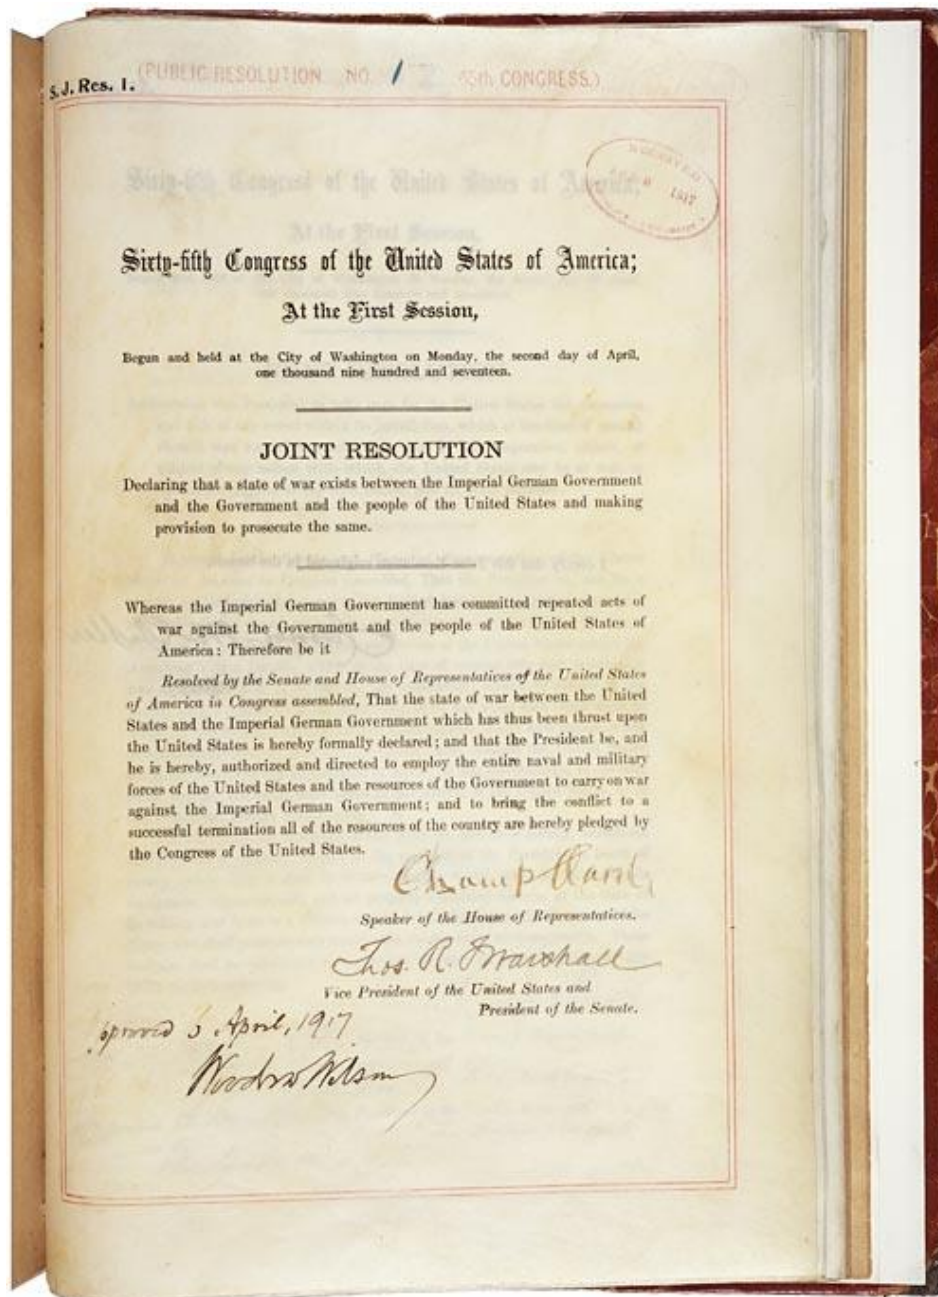 S. J. Res. 1.
(PUBLIC RESOLUTION NO. 1 65th CONGRESS.)
1917
Sixty-fifth Congress of the United States of America;
At the First Session,
Begun and held at the City of Washington on Monday, the second day of April,
one thousand nine hundred and seventeen.
JOINT RESOLUTION
Declaring that a state of war exists between the Imperial German Government
and the Government and the people of the United States and making
provision to prosecute the same.
Whereas the Imperial German Government has committed repeated acts of
war against the Government and the people of the United States of
America: Therefore be it
Resolved by the Senate and House of Representatives of the United States
of America in Congress assembled, That the state of war between the United
States and the Imperial German Government which has thus been thrust upon
the United States is hereby formally declared; and that the President be, and
he is hereby, authorized and directed to employ the entire naval and military
forces of the United States and the resources of the Government to carry on war
against the Imperial German Government; and to bring the conflict to a
successful termination all of the resources of the country are hereby pledged by
the Congress of the United States.
Champ Clark
Speaker of the House of Representatives.
Thos. R. Marshall
Vice President of the United States and
President of the Senate.
April, 1917
Woodrow Wilson